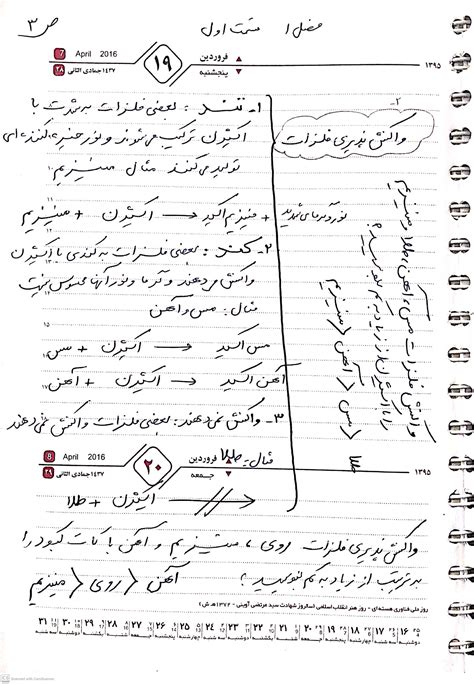 فصل ۱ قسمت اول ص ۳
7 April 2016
۲۸ ۱۴۳۷ جمادی الثانی
۱۹
فروردین
پنجشنبه
۱۳۹۵
۲-
واکنش پذیری فلزات
۱- تند : بعضی فلزات به شدت با
اکسیژن ترکیب می شوند و نور خیره کننده ای
تولید می کنند مثال منیزیم
نور و گرمای شدید + منیزیم اکسید ← اکسیژن + منیزیم
۲- کند : بعضی فلزات به کندی با اکسیژن
واکنش می دهند و گرما و نور آنها محسوس نیست
مثال : مس و آهن
مس اکسید ← اکسیژن + مس
آهن اکسید ← اکسیژن + آهن
۳- واکنش نمی دهند : بعضی فلزات واکنش نمی دهند
واکنش فلزات مس، آهن، طلا و منیزیم
را با اکسیژن از زیاد به کم بنویسید؟
طلا < مس < آهن < منیزیم
8 April 2016
۲۹ ۱۴۳۷ جمادی الثانی
۲۰
فروردین
جمعه
۱۳۹۵
مثال : طلا
اکسیژن + طلا
واکنش پذیری فلزات روی ، منیزیم و آهن با کات کبود را
به ترتیب از زیاد به کم بنویسید ؟ آهن < روی < منیزیم
روز ملی فناوری هسته‌ای - روز هنر انقلاب اسلامی (سالروز شهادت سید مرتضی آوینی - ۱۳۷۲ ه ش)
۱۶ ۱۷ ۱۸ ۱۹ ۲۰ ۲۱ ۲۲ ۲۳ ۲۴ ۲۵ ۲۶ ۲۷ ۲۸ ۲۹ ۳۰ ۳۱
CS Scanned with CamScanner